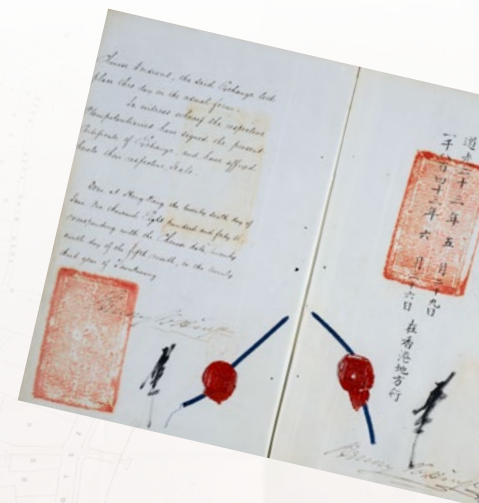 Chinese Emperor, the said Exchange took
place this day in the usual form.
In witness whereof the respective
Plenipotentiaries have signed the present
Certificate of Exchange, and have affixed
thereto their respective Seals.
Done at Hong Kong the twenty sixth day of
June One thousand Eight hundred and forty
corresponding with the Chinese date twenty
ninth day of the fifth month, in the twenty
third year of Taoukwang
道光二十三年五月二十九日
一千八百四十三年六月二十六日在香港地方行